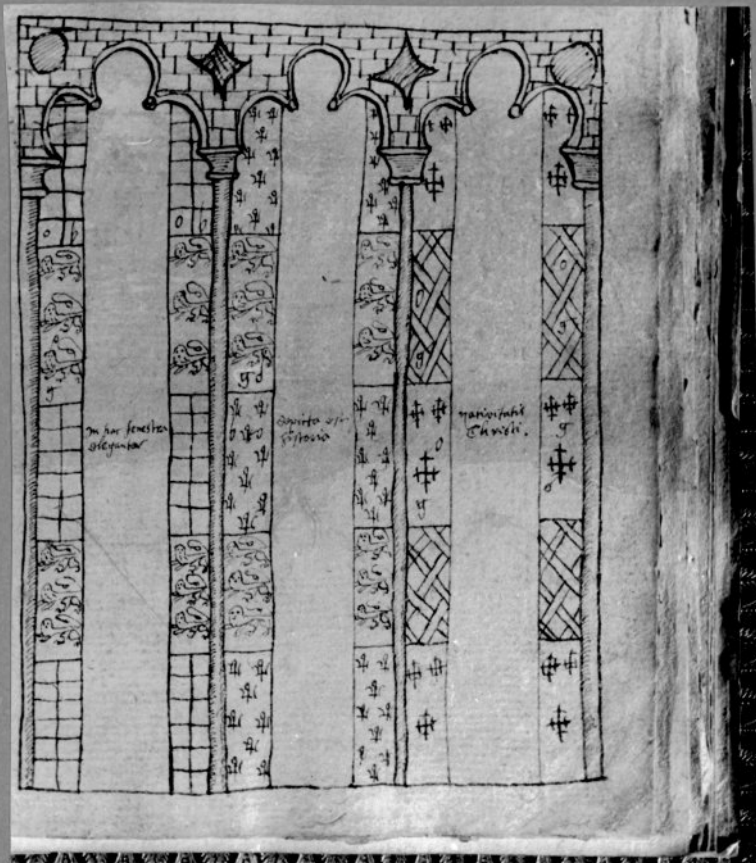 In hac fenestra
eleganter
depicta est
historia
nativitatis
Christi.
o
g
o
g
g
o
g
o
g
o